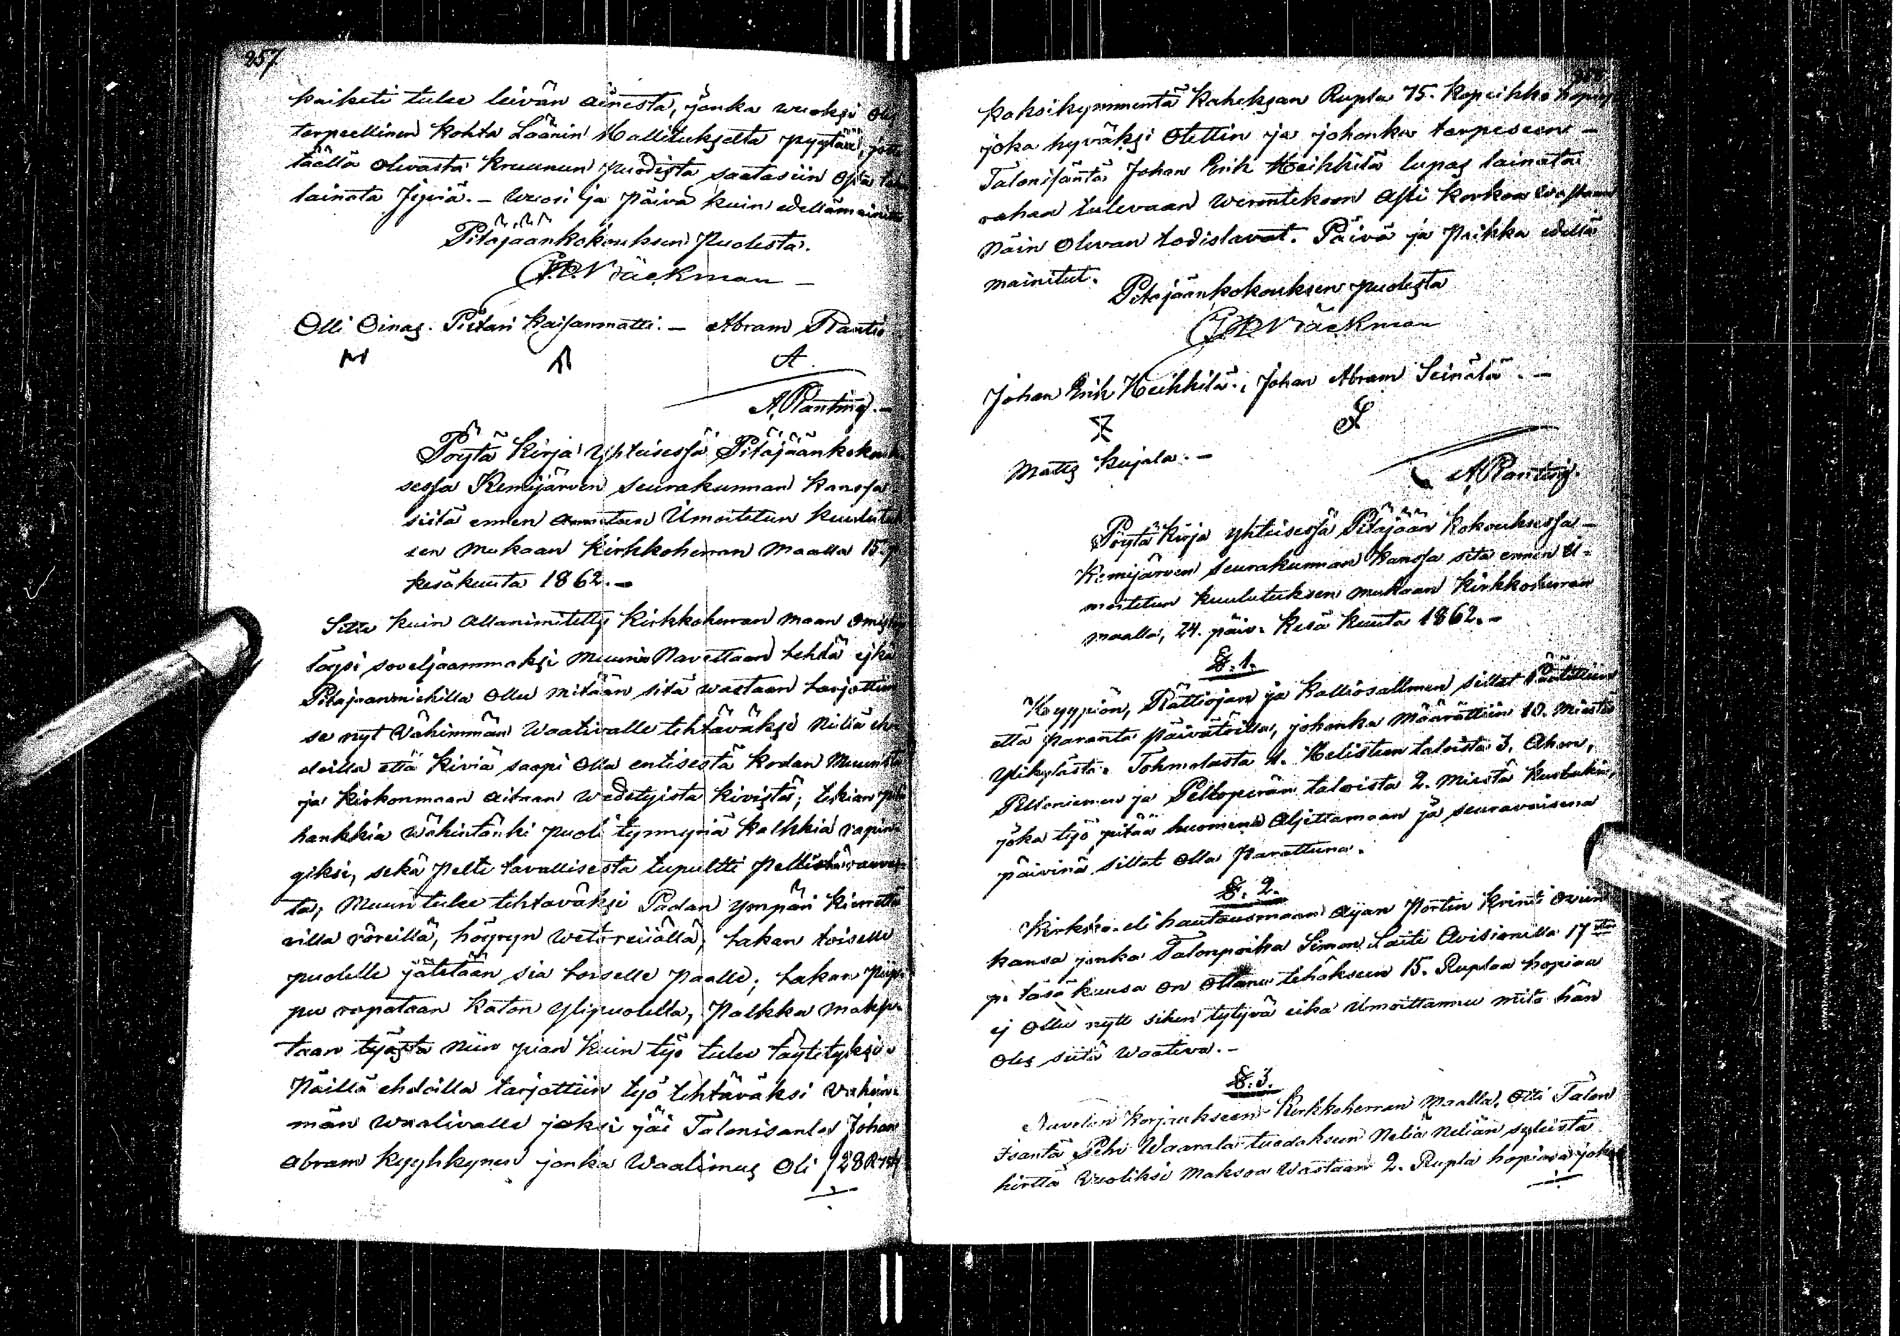 257
kaiketi tulee leivän ainesta, jonka wuoksi Olis
tarpeellinen kohta Läänin Hallitukselta pyytää, jotta
täällä olevasta kruunun puodista saatasiin
lainata Jyviä. – wuosi ja päivä kuin edellämainittu
Pitäjäänkokouksen puolesta.
Olli Oinas. Pietari Kaisanmatti. – Abram Rantio
A.
A. Planting. –
Pöytä Kirja yhteisessä Pitäjäänkokouk-
sessa Kemijärven seurakunnan kanssa
siitä ennen Ilmoitetun kuulutuk-
sen mukaan kirkkoherran maalla 15. p.
kesäkuuta 1862. –
Sitte kuin allanimitetty kirkkoherran maan
löysi soveljaammaksi muurin Navettaan tehdä ejkä
Pitäjäänmiehillä ollu mitään sitä wastaan tarjottiin
se nyt vähimmän waativalle tehtäväksi niiliä eh-
doilla että kiviä saapi olla entisestä kodan muurista
ja kirkonmaan aitaan wedetyistä kivistä; tekiän pitä
hankkia wähintänki puoli tynnyriä kalkkia rapin-
giksi, sekä pelti tavallisesta tupultti pellistä
ta; Muuri tulee tehtäväksi Padan ympäri kierrettä
villä röreillä, höyryn weto reijällä; takan toiselle
puolelle jätetään sia toiselle paalle; takan piip-
pu rapataan katon ylipuolella, Palkka makse-
taan työstä niin pian kuin työ tulee täytetyksi.
Näillä ehdoilla tarjottiin työ tehtäväksi vähim-
män waativalle joksi jäi Talonisäntä Johan
Abram Kyyhkynen jonka waatimus oli 28 R
kaksikymmentä kaheksan Rupla 75. kopeikka hopias
joka hyväksi otettin ja johonka tarpeseen –
Talonisäntä Johan Erik Heikkilä lupas lainata
rahan tulevaan wirontekoon asti korkoa wastaan
näin olevan todistavat. Päivä ja paikka edellä
mainitut.
Pitäjäänkokouksen puolesta
Johan Erik Heikkilä., Johan Abram Seinälä. –
Matts Kujala. –
A. Planting.
Pöytä Kirja yhteisessä Pitäjään kokouksessa –
Kemijärven seurakunnan kanssa sitä ennen il-
moitetun kuulutuksen mukaan kirkkoherran
maalla, 24. päiv. Kesä kuuta 1862. –
§. 1.
Kyypiön, Rättiojan ja Kalliosallmen sillat päätettiin
että paranta päivätöillä, johonka määrättiin 10. miestä
ylikylästä. Tohmolasta 1. Helistun taloista 3. Ahon,
Peltoniemen ja Peltoperän taloista 2. miestä kustakin,
joka työ pitää huomena aljettamaan ja seuravaisena
päivinä sillat olla parattuna.
§. 2.
Kirkko- eli hautausmaan aijan Portin krint ovein
kansa jonka Talonpoika Simon Laiti Avisionilla 17sta
p. täsä kuusa on ottanu tehdäkseen 15. Ruplaa hopiaa
ej ollu nytt siken tytyvä eikä ilmoittannu mitä hän
olis siitä waativa. –
§. 3.
Navetan korjaukseen Kirkkoherran maalla, otti Talon
Isäntä Pehr Waarala tuodakseen neliä neliän sylistä
hirttä vuoliksi maksoa wastaan 2. Rupla hopiasa joka